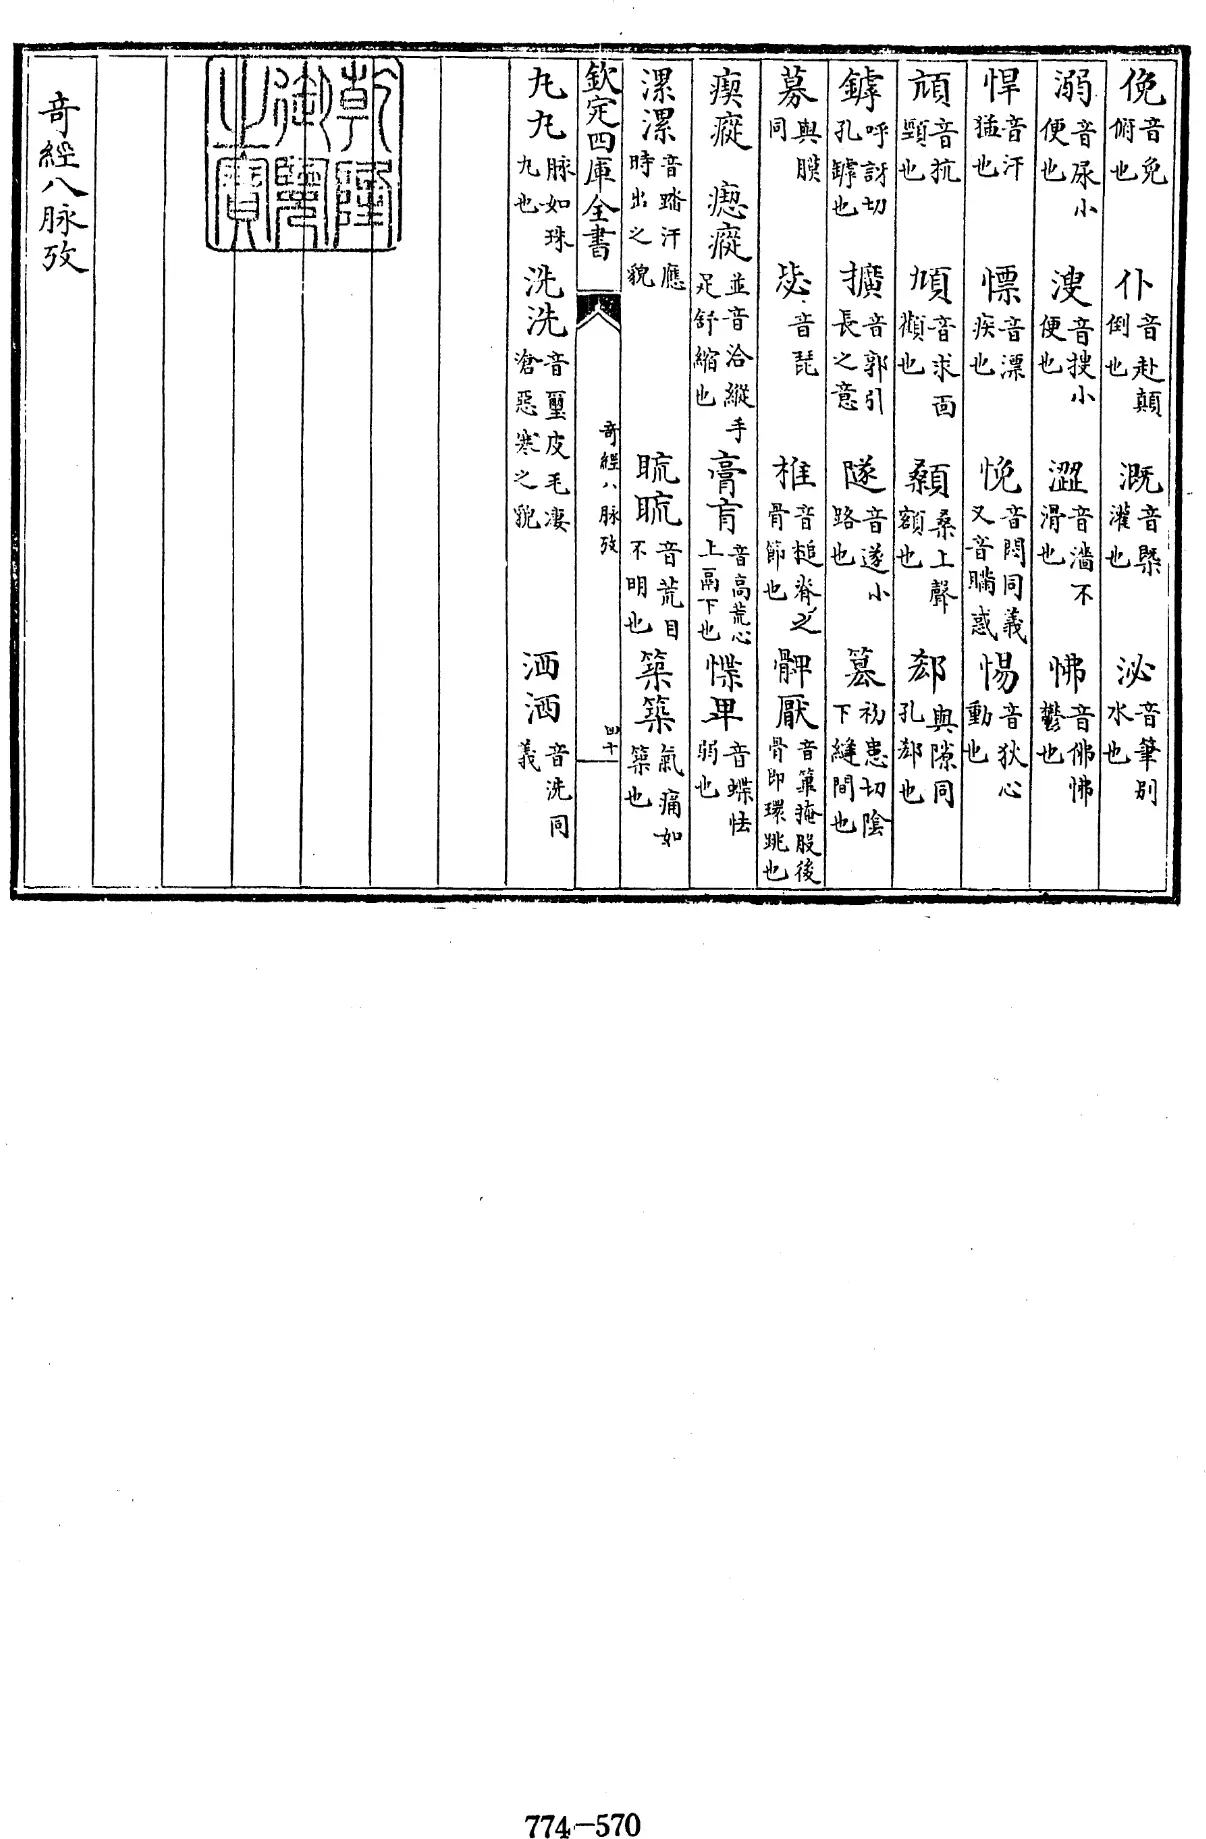 俛音免俯也　仆音赴顛倒也　溉音槩灌也　泌音筆别水也
溺音尿小便也　溲音搜小便也　澀音濇不滑也　怫音佛怫鬱也
悍音汗猛也　慓音漂疾也　悗音悶同義又音瞞惑　惕音狄心動也
頏音抗頸也　頄音求面顴也　顙桑上聲額也　郄與隙同孔郄也
罅呼訝切孔罅也　擴音郭引長之意　隧音遂小路也　篡初患切陰下縫間也
募與膜同　毖音琵　椎音槌脊之骨節也　髀厭音箄掩股後骨即環跳也
瘈瘲　瘛瘲並音洽縱手足舒縮也　膏肓音高荒心上鬲下也　惵卑音蝶怯弱也
漯漯音踏汗應時出之貌　䀮䀮音荒目不明也　築築氣痛如築也
欽定四庫全書　奇經八脉攷　四十
丸丸脉如珠丸也　洗洗音璽皮毛凄滄惡寒之貌　洒洒音洗同義
乾隆御覽之寶
奇經八脉攷
774-570